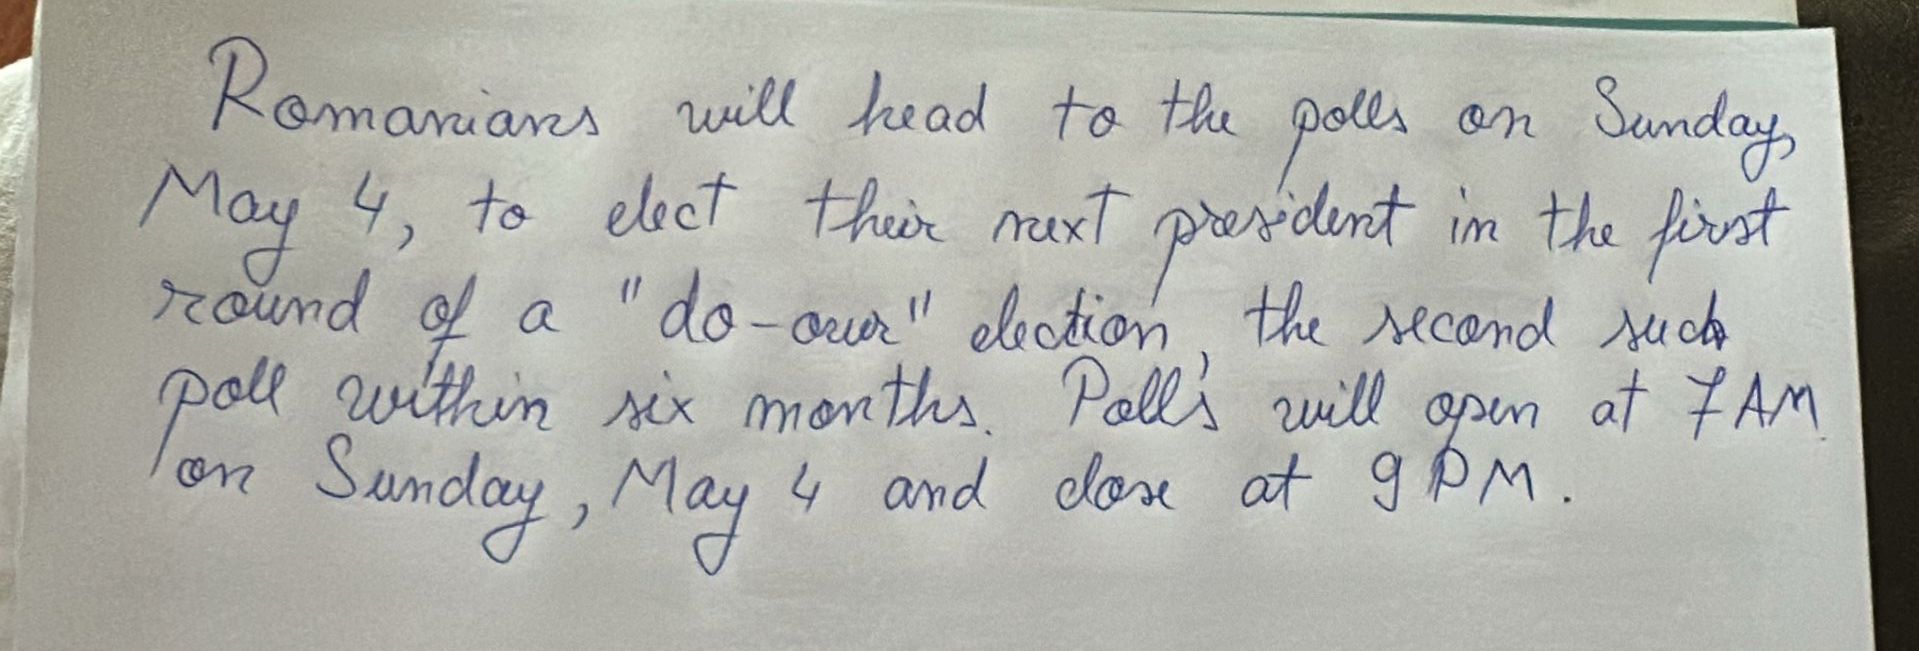 Romanians will head to the polls on Sunday,
May 4, to elect their next president in the first
round of a "do-over" election, the second such
poll within six months. Polls will open at 7 AM
on Sunday, May 4 and close at 9 PM.